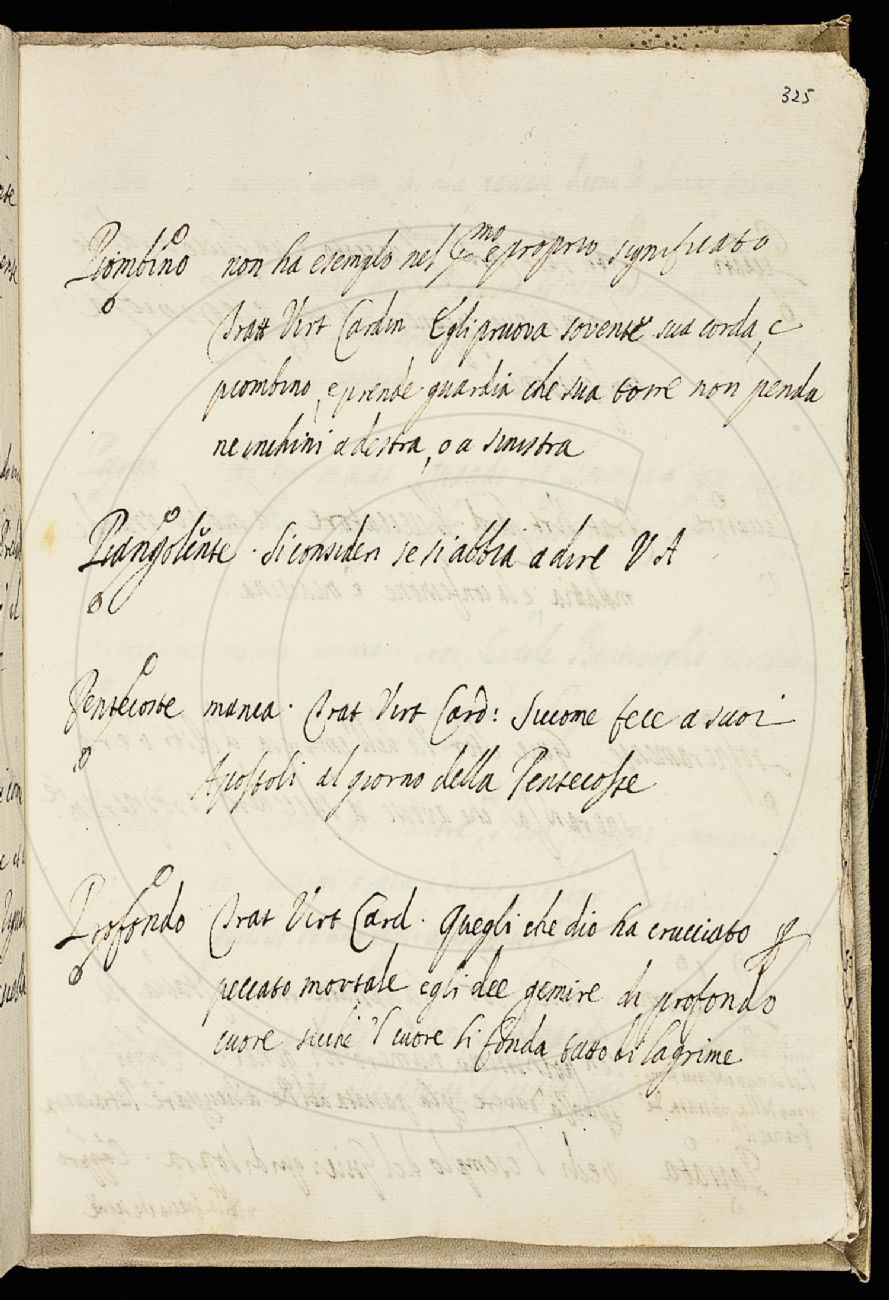 325
Piombino non ha esemplo nel pmo e proprio significato
Tratt Virt Cardin Egli pruova sovente sua corda, e
piombino, e prende guardia che sua torre non penda
ne inchini a destra, o a sinistra
Piangolente. Si consideri se si abbia a dire V A
Pentecoste manca. Trat Virt Card: Siccome fece a suoi
Apostoli al giorno della Pentecoste
Profondo Trat Virt Card. Quegli che dio ha crucciato p
peccato mortale egli dee gemire di profondo
cuore sicche 'l cuore si fonda tutto di lagrime